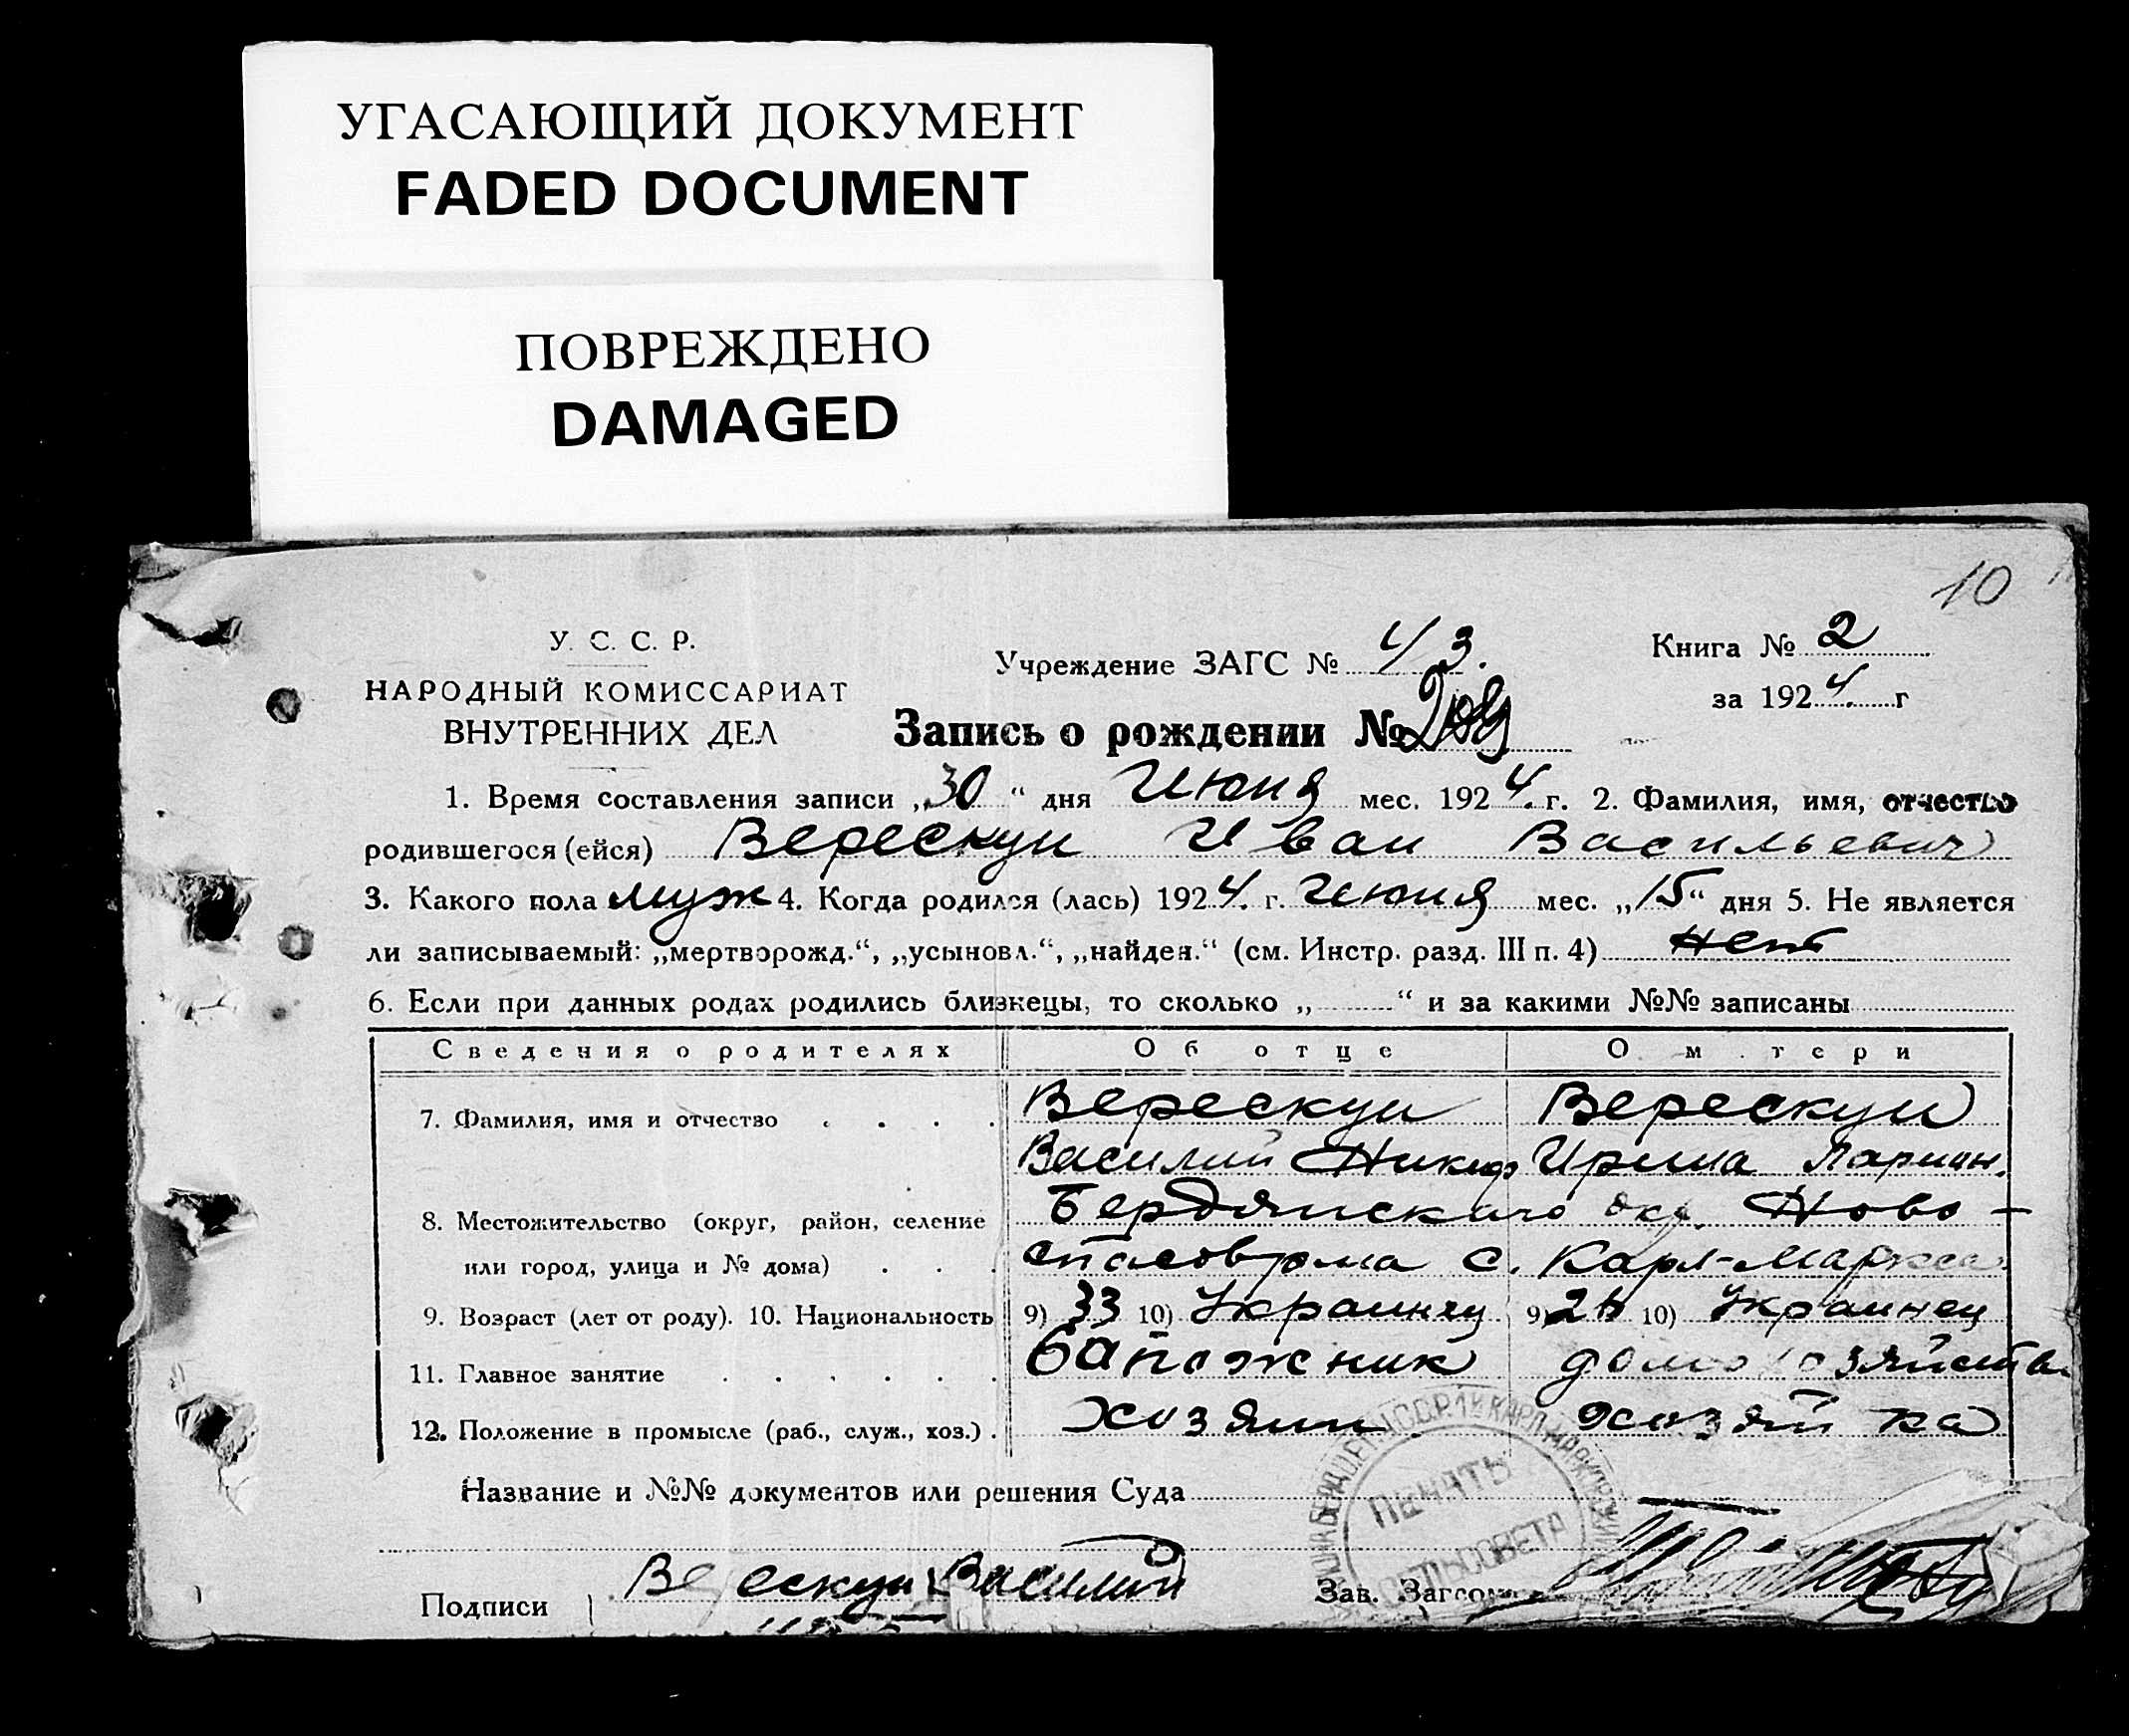 УГАСАЮЩИЙ ДОКУМЕНТ
FADED DOCUMENT
ПОВРЕЖДЕНО
DAMAGED
10
У. С. С. Р.
НАРОДНЫЙ КОМИССАРИАТ
ВНУТРЕННИХ ДЕЛ
Учреждение ЗАГС № 43.
Книга № 2
за 1924. г
Запись о рождении №
1. Время составления записи „30“ дня Июня мес. 1924. г. 2. Фамилия, имя, отчество
родившегося (ейся) Верескун Иван Васильевич
3. Какого пола муж 4. Когда родился (лась) 1924. г. Июня мес. „15“ дня 5. Не является
ли записываемый: „мертворожд.“, „усыновл.“, „найден.“ (см. Инстр. разд. III п. 4) нет
6. Если при данных родах родились близнецы, то сколько „ “ и за какими №№ записаны
Сведения о родителях Об отце О м тери
7. Фамилия, имя и отчество Верескун Верескун
Василий Никиф Ирина Ларион.
8. Местожительство (округ, район, селение Бердянскаго окр. Ново-
или город, улица и № дома) с. Карл-Маркса
9. Возраст (лет от роду). 10. Национальность 9) 33 10) Украинец 9) 10) Украинец
11. Главное занятие Сапожник домохозяйств.
12. Положение в промысле (раб., служ., хоз.). хозяин хозяйка
Название и №№ документов или решения Суда
ПЕЧАТЬ
СЕЛЬСОВЕТА
Подписи Верескун Василий Зав. Загсом